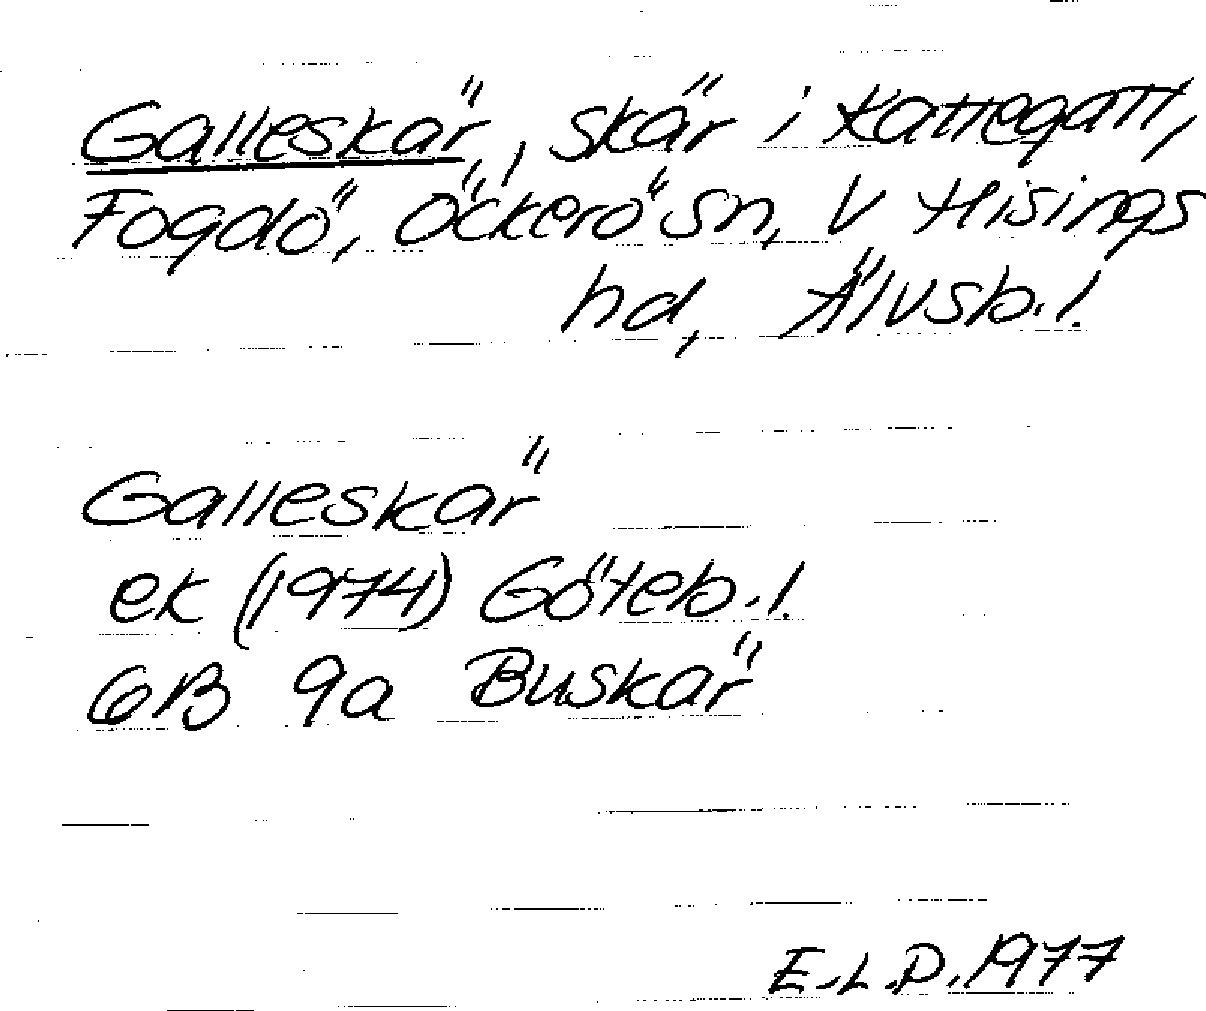 Galleskär, skär i Kattegatt,
Fogdö, Öckerö sn, V Hisings
hd, Älvsb.l.
Galleskär
ek (1974) Göteb.l.
6B 9a Buskär
E.L.P. 1977